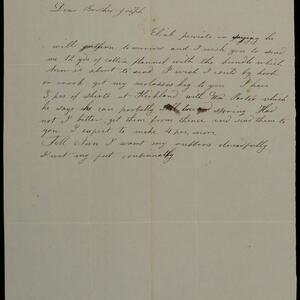 Dear Brother Joseph
Elijah persists in saying he
will to morrow and I wish you to send
me 12 yds of cotton flannel with the bundle which
Ann is about to send I wish I could by hook
or crook get my molasses keg to you I have
3 prs of shirts at Kirkland with Wm Porter which
he says he can probably spring Had
not I better get them from thence and send them to
you I expect to make 4 prs more
Tell Ann I want my rubbers dreadfully
I wet my feet continually